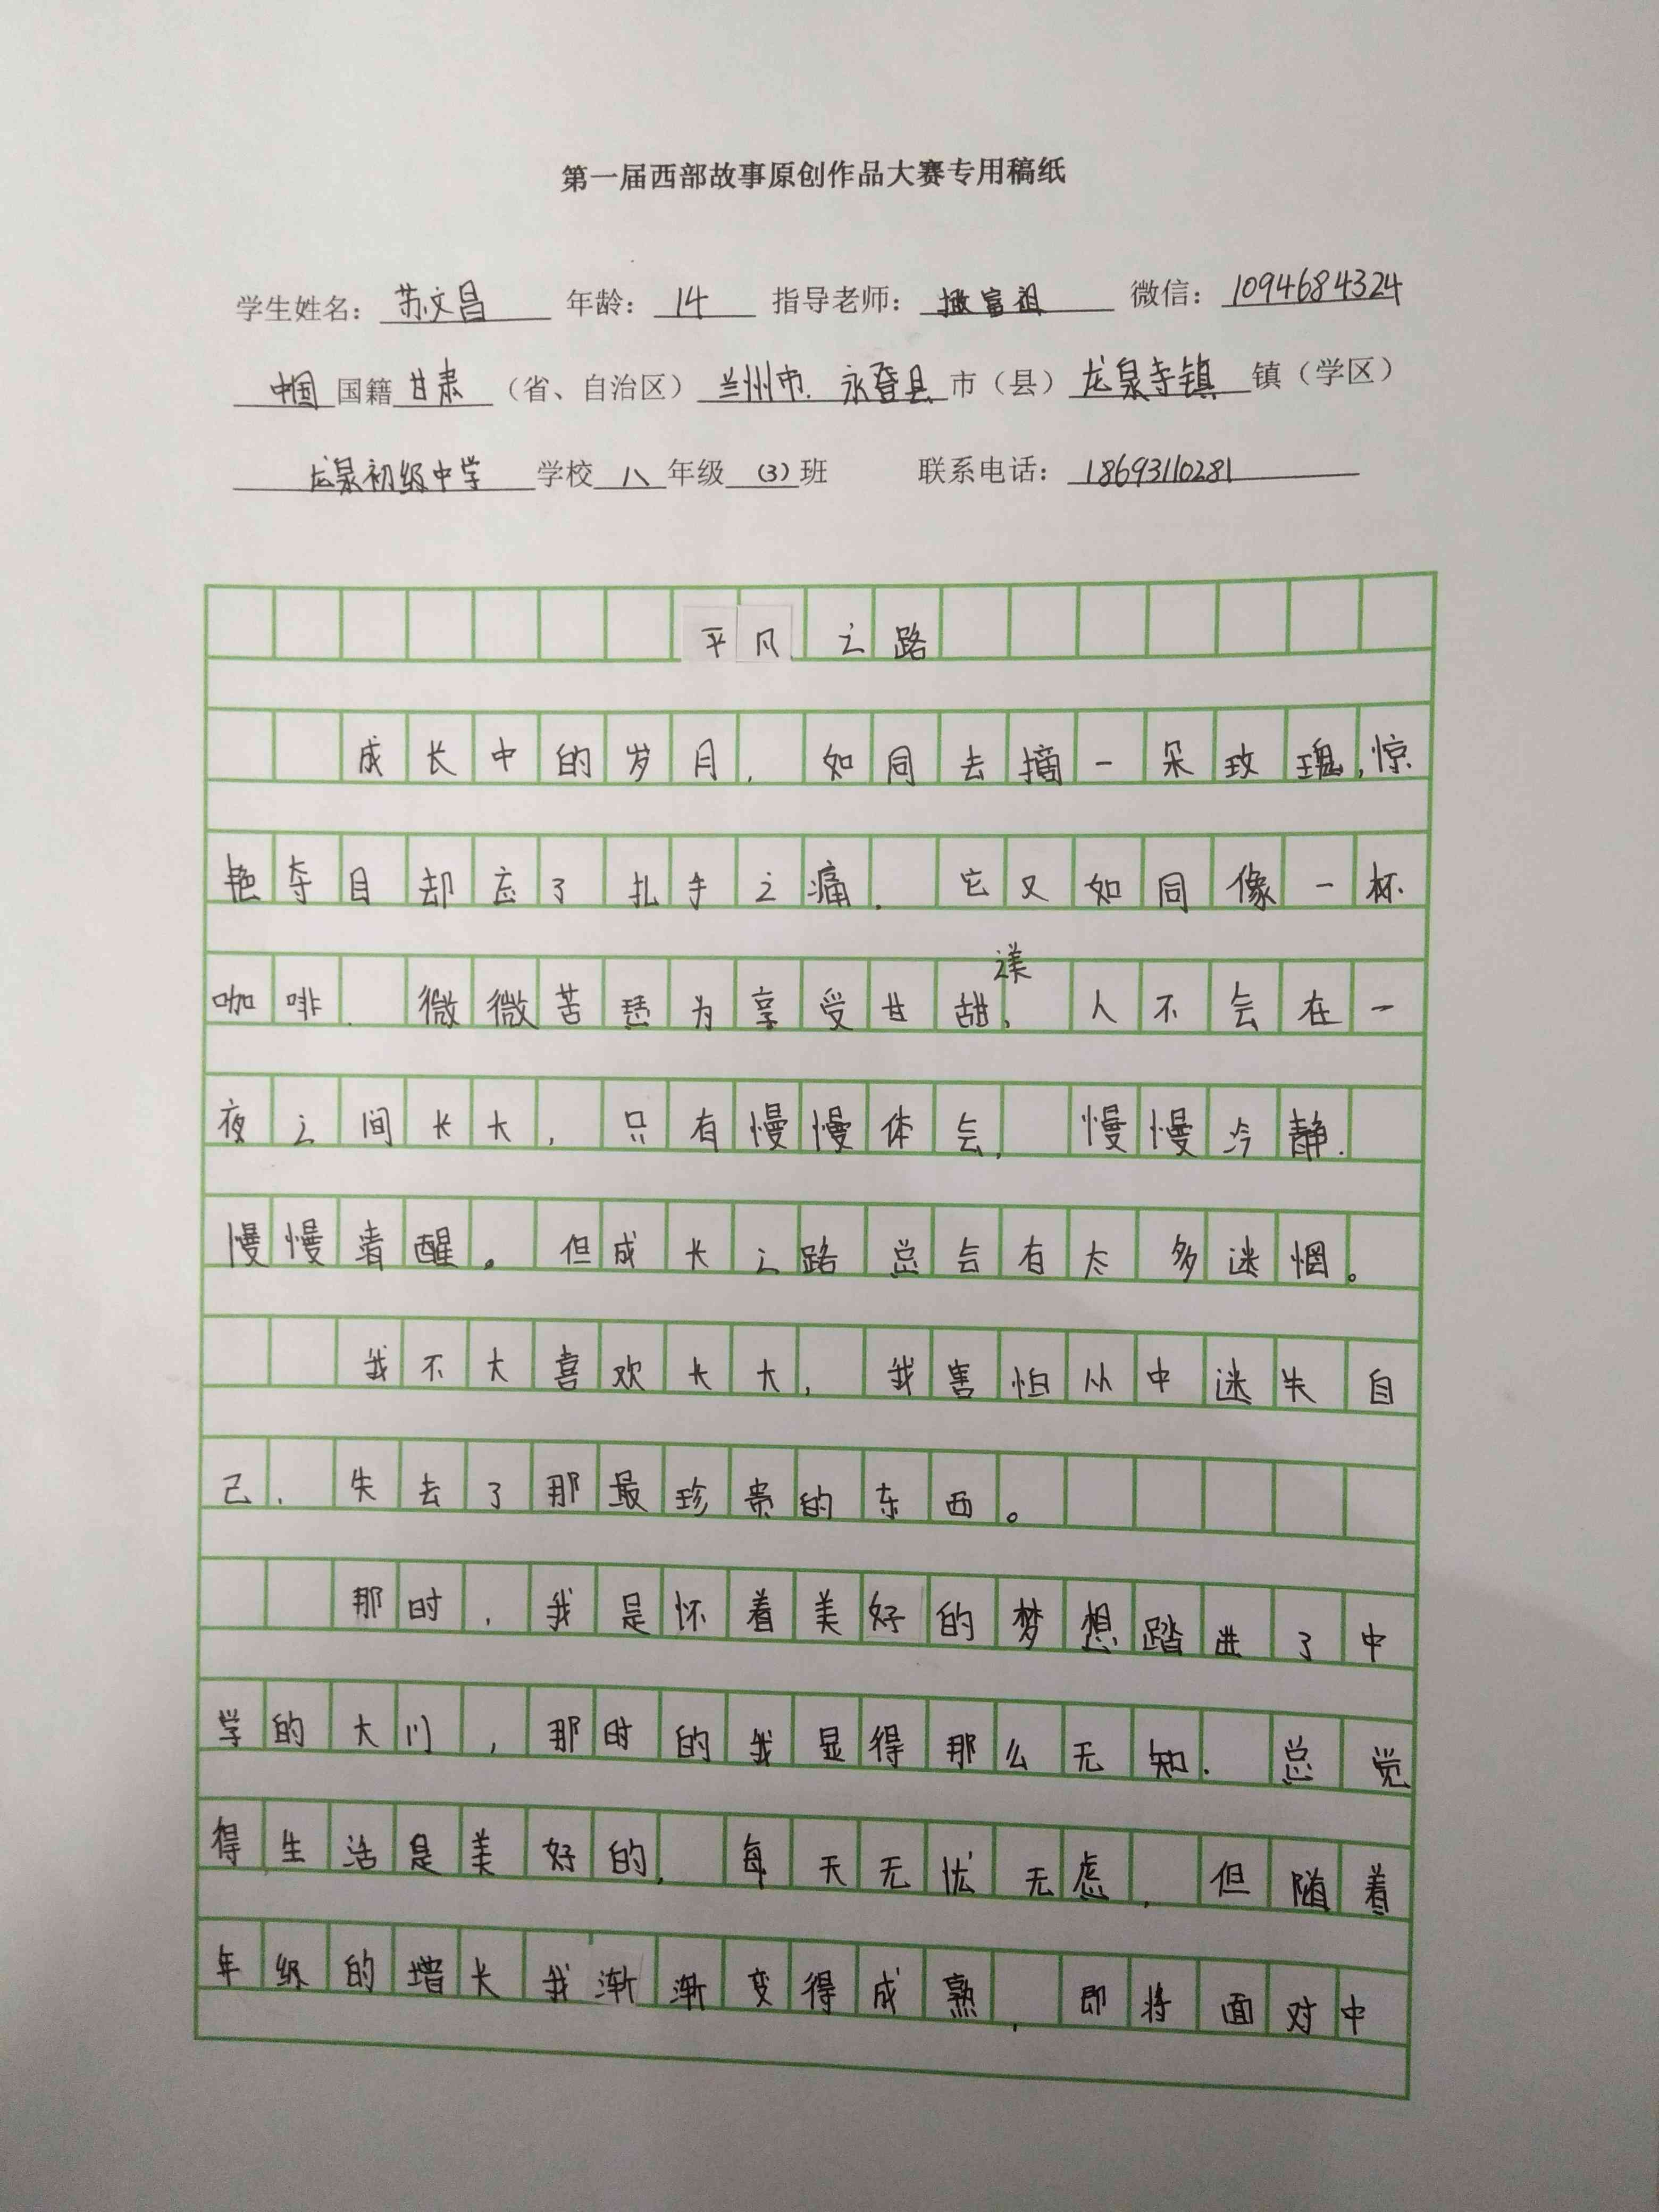 第一届西部故事原创作品大赛专用稿纸
学生姓名：苏文昌 年龄：14 指导老师：富祖 微信：1094684324
中国国籍甘肃（省、自治区）兰州市.永登县市（县）龙泉寺镇镇（学区）
龙泉初级中学学校八年级（3）班 联系电话：18693110281
平凡之路
成长中的岁月，如同去摘一朵玫瑰，惊
艳夺目却忘了扎手之痛．它又如同像一杯
咖啡．微微苦涩为享受甘甜，人不会在一
夜之间长大，只有慢慢体会，慢慢冷静．
慢慢清醒。但成长之路总会有太多迷惘。
我不大喜欢长大，我害怕从中迷失自
己，失去了那最珍贵的东西。
那时，我是怀着美好的梦想踏进了中
学的大门，那时的我显得那么无知．总觉
得生活是美好的，每天无忧无虑，但随着
年级的增长我渐渐变得成熟，即将面对中